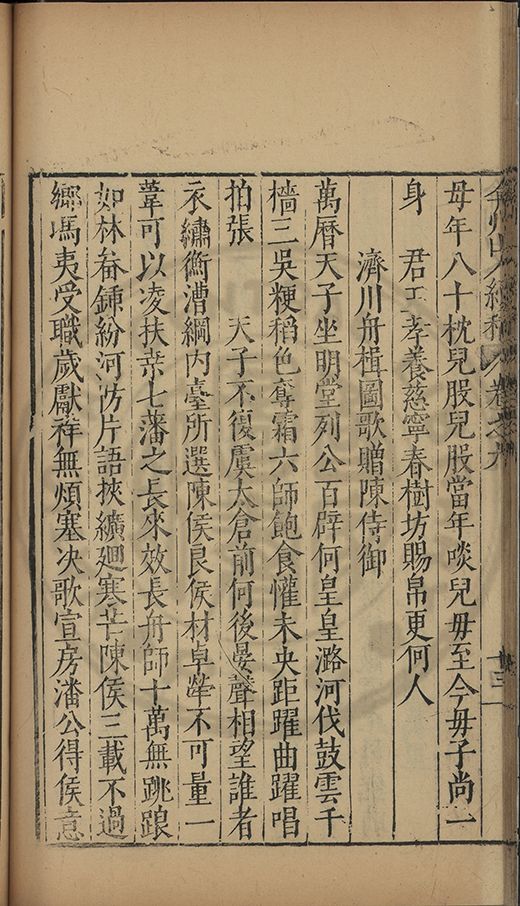 弇州山人續稿 卷之九 十三
母年八十枕兒股兒股當年啖兒母至今母子尚一
身 君王孝養慈寧春樹坊賜帛更何人
濟川舟楫圖歌贈陳侍御
萬曆天子坐明堂列公百辟何皇皇潞河伐鼓雲千
檣三吳粳稻色奪霜六師飽食懽未央距躍曲躍唱
拍張 天子不復虞太倉前何後晏聲相望誰者
衣繡衡漕綱內臺所選陳侯良侯材卓犖不可量一
葦可以凌扶桒七藩之長來效長舟師十萬無跳踉
如林畚鍤紛河防片語挾纊廻寒芒陳侯三載不過
鄉馮夷受職歲獻祥無煩塞决歌宣房潘公得侯意